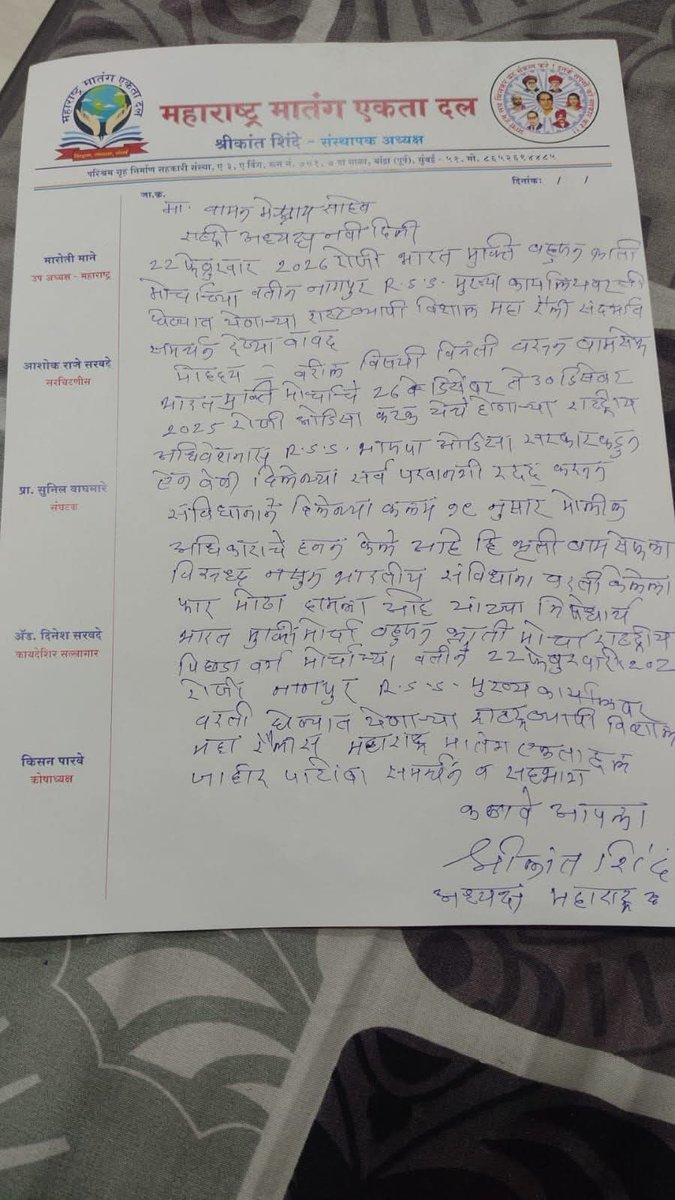 महाराष्ट्र मातंग एकता दल
शिक्षण, समाज, संघर्ष
महाराष्ट्र मातंग एकता दल
श्रीकांत शिंदे - संस्थापक अध्यक्ष
परिश्रम गृह निर्माण सहकारी संस्था, ए ३, ए विंग, रूम नं. ७५१, ७ वा माळा, बांद्रा (पूर्व), मुंबई - ५१. मो. ८६५२६९४४८५
जा.क्र.
दिनांक: / /
मारोती माने
उप अध्यक्ष - महाराष्ट्र
आशोक राजे सरवदे
सरचिटणीस
प्रा. सुनिल वाघमारे
संघटक
ॲड. दिनेश सरवदे
कायदेशिर सल्लागार
किसन पारवे
कोषाध्यक्ष
मा. वामन मेश्राम साहेब
अध्यक्ष नवी दिल्ली
22 फेब्रुवार 2026 रोजी भारत मुक्ति बहुजन क्रांती
मोर्चाच्या वतीन नागपुर R.S.S. मुख्या कार्यालयावरती
घेण्यात येणाऱ्या राष्टव्यापी विशाल महा रॅली संदर्भात
समर्थन देण्या बाबद
महोदय - वरील विषयी विनंती करतन बामसेफ
भारत मुक्ति मोर्चाचे 26 डिसेंबर ते 30 डिसेंबर
2025 रोजी ओडिसा कटक येथे होणाऱ्या राष्ट्रीय
अधिवेशनास R.S.S. भाजपा ओडिसा सरकारकडुन
ऐन वेळी दिलेल्या सर्व परवानगी रद्द करून
संविधानाने दिलेल्या कलम १९ नुसार मौलीक
अधिकाराचे हनन केले आहे हि कृती बामसेफच्या
विरुध्द नसुन भारतीय संविधाना वरती केलेला
फार मोठा हामला आहे यांच्या निषेधार्थ
भारत मुक्ती मोर्चा बहुजन क्रांती मोर्चा राष्ट्रीय
पिछडा वर्ग मोर्चाच्या वतीने 22 फेब्रुवारी 202
रोजी नागपुर R.S.S. मुख्य कार्यालयावर
वरती घेण्यात येणाऱ्या राष्टव्यापी विशाल
महा रॅलीस महाराष्ट्र मातंग एकता दल
जाहीर पाठिंबा समर्थन व सहभाग
कळावे आपला
श्रीकांत शिंदे
अध्यक्ष महाराष्ट्र